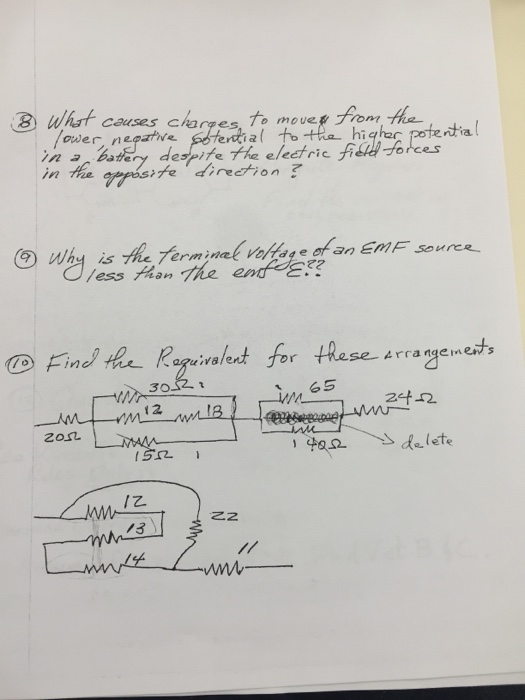 ⑧ What causes charges, to move from the
lower, negative potential to the higher potential
in a battery despite the electric field forces
in the opposite direction?
⑨ Why is the terminal voltage of an EMF source
less than the emf ℰ??
⑩ Find the Requivalent for these arrangements
30Ω 65
12 18 24Ω
20Ω 40Ω → delete
15Ω
12
22
13
11
14